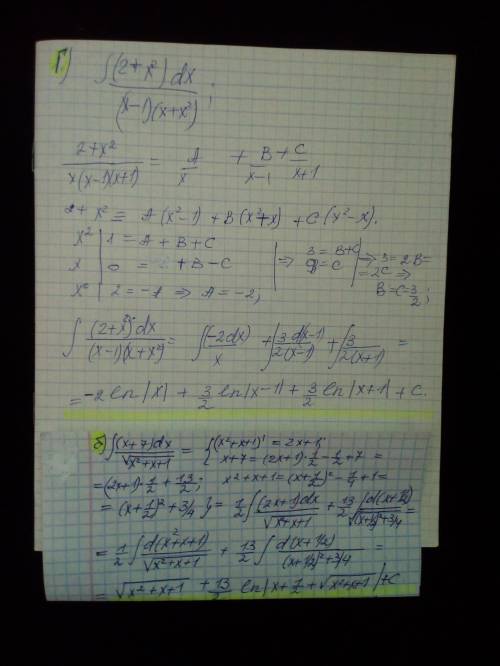 Г) ∫ (2+x²) dx / (x-1)(x+x²) ;
2+x² / x(x-1)(x+1) = A / x + B / x-1 + C / x+1
2+x² ≡ A(x²-1) + B(x²+x) + C(x²-x).
x² | 1 = A+B+C
x | 0 = B-C
x⁰ | 2 = -A ⇒ A = -2;
⇒ 3 = B+C
B = C
⇒ 3 = 2B =
= 2C ⇒
B = C = 3/2 ;
∫ (2+x²) dx / (x-1)(x+x²) = ∫ (-2dx) / x + ∫ 3 d(x-1) / 2(x-1) + ∫ 3 / 2(x+1) =
= -2 ln|x| + 3/2 ln|x-1| + 3/2 ln|x+1| + C.
б) ∫ (x+7)dx / √x²+x+1 = { (x²+x+1)' = 2x+1;
x+7 = (2x+1)·1/2 - 1/2 + 7 =
= (2x+1)·1/2 + 13/2 ; x²+x+1 = (x+1/2)² - 1/4 + 1 =
= (x+1/2)² + 3/4 } = 1/2 ∫ (2x+1)dx / √x²+x+1 + 13/2 ∫ d(x+1/2) / √(x+1/2)²+3/4 =
= 1/2 ∫ d(x²+x+1) / √x²+x+1 + 13/2 ∫ d(x+1/2) / (x+1/2)²+3/4 =
= √x²+x+1 + 13/2 ln|x+1/2+√x²+x+1|+C